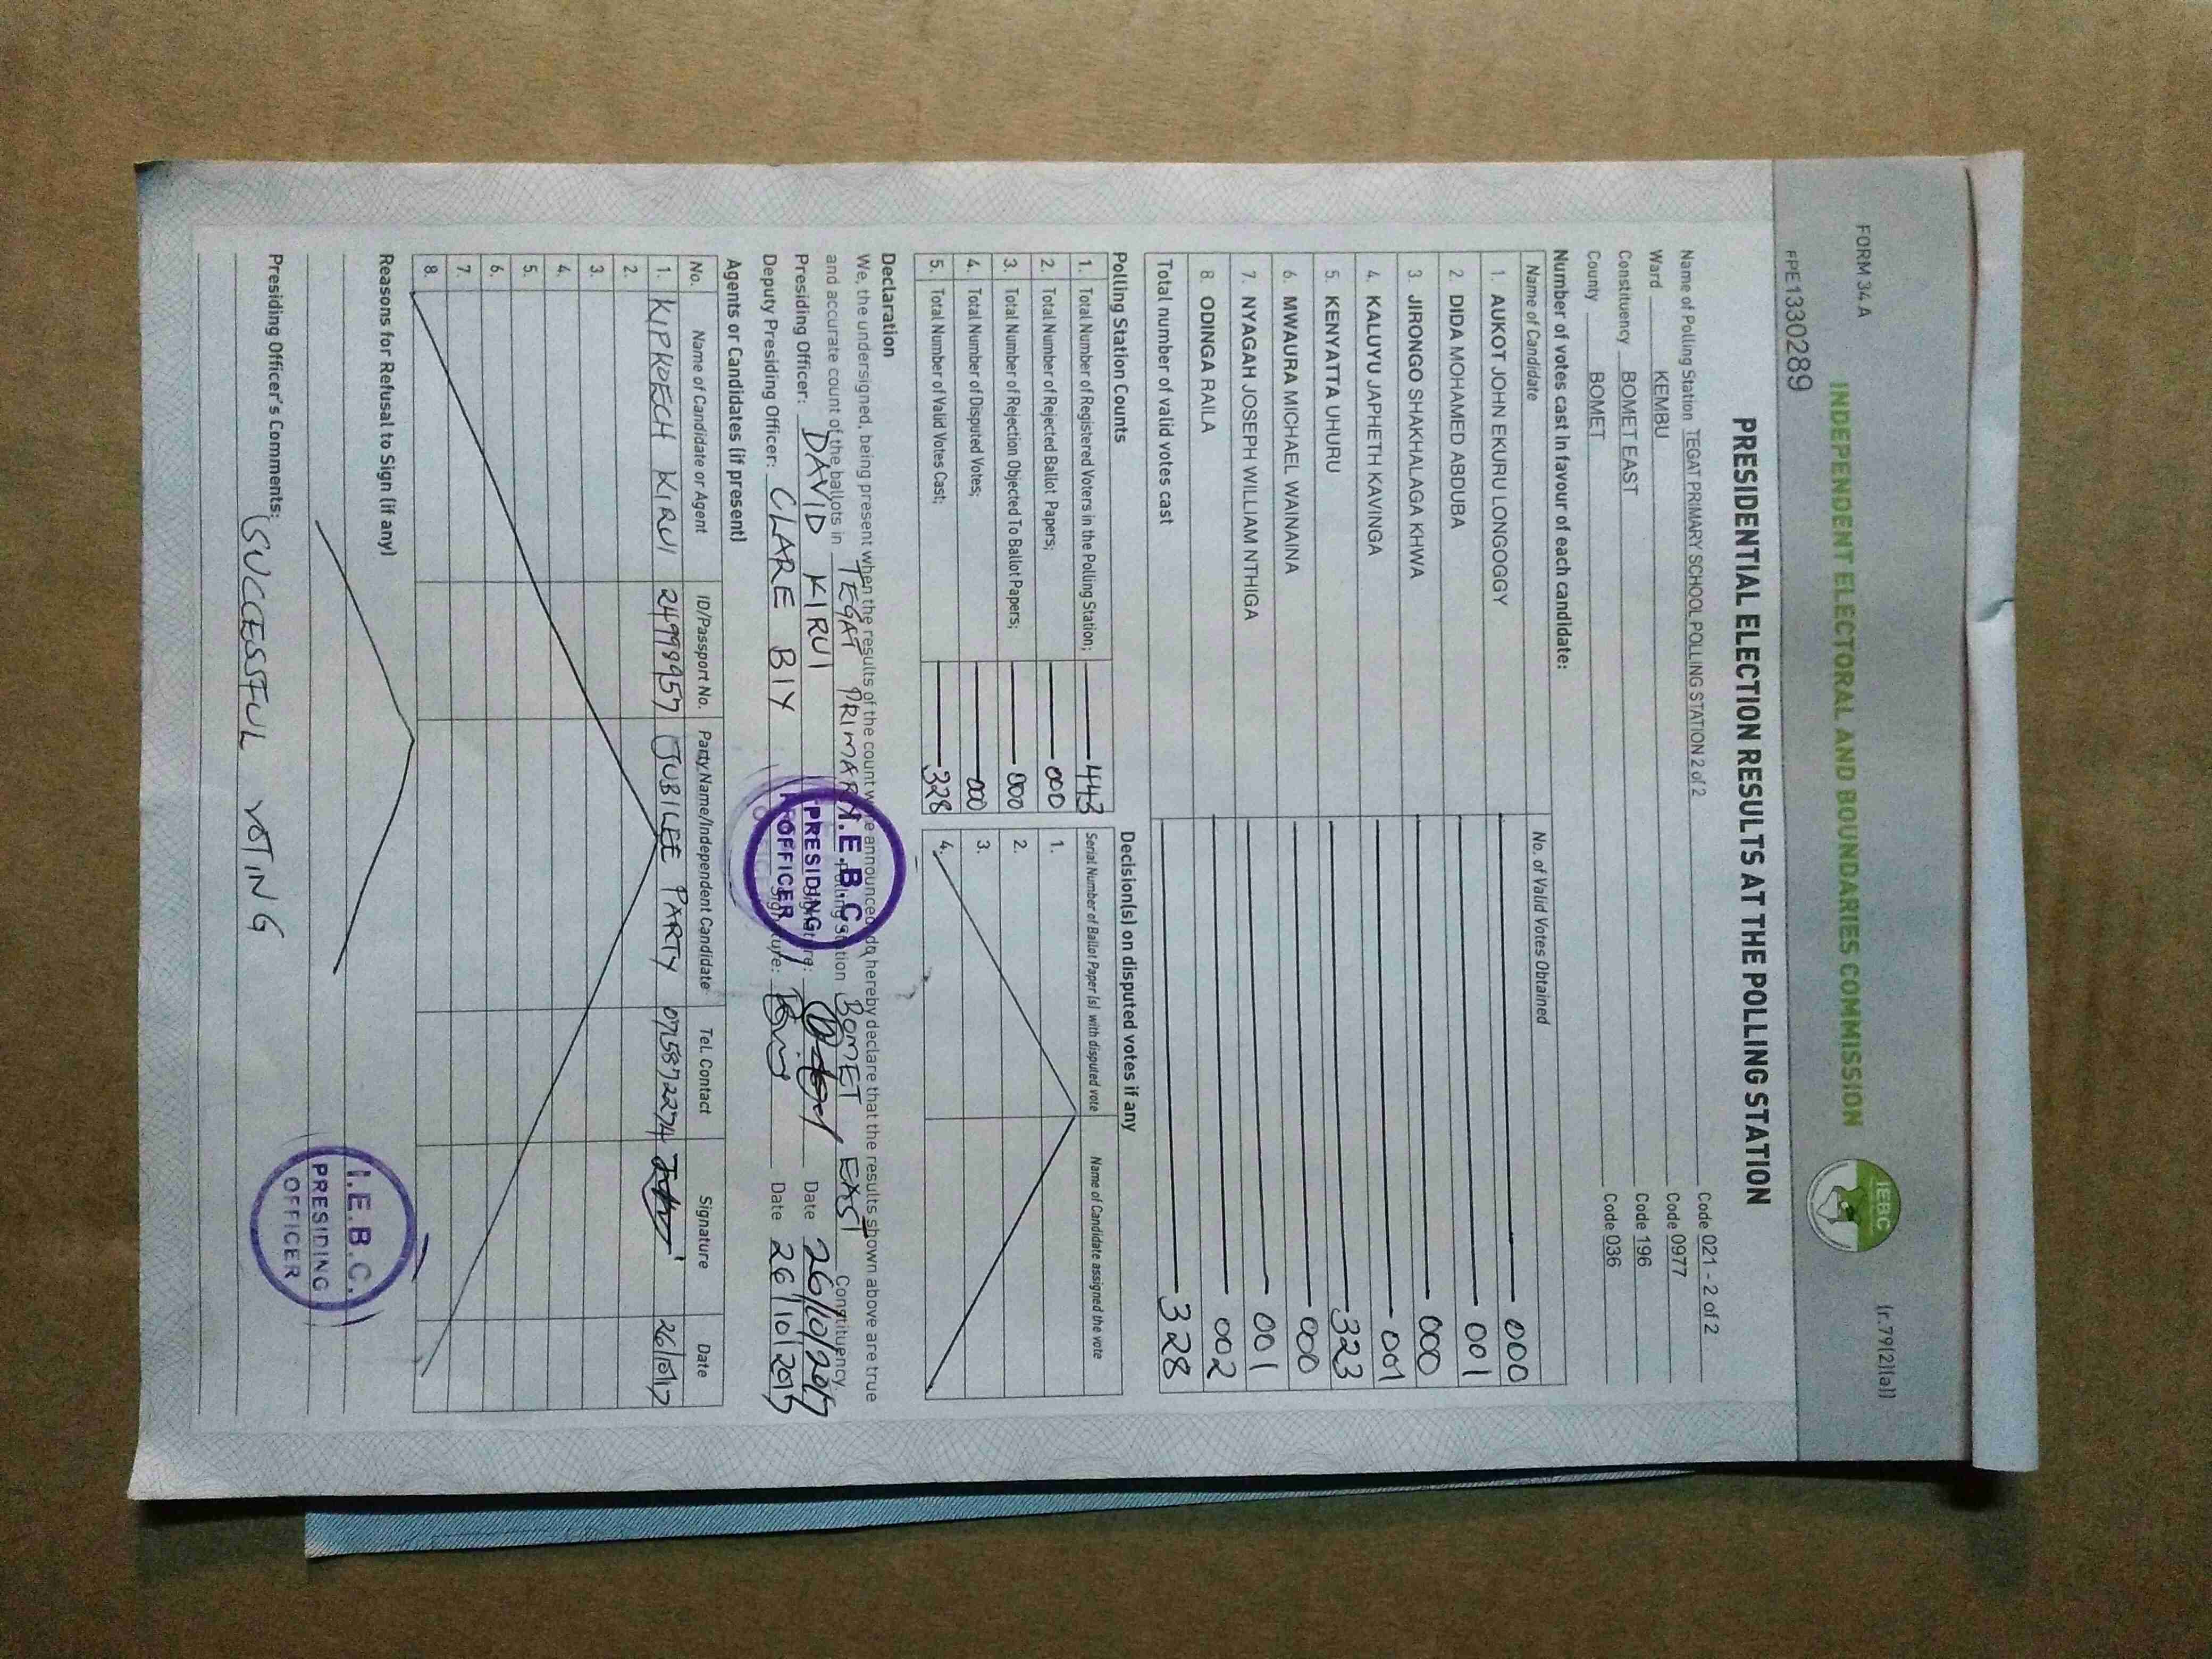 FORM 34A
(r.79(2)(a))
INDEPENDENT ELECTORAL AND BOUNDARIES COMMISSION
IEBC
PRESIDENTIAL ELECTION RESULTS AT THE POLLING STATION
Name of Polling Station TEGAT PRIMARY SCHOOL POLLING STATION 2 of 2 Code 021 - 2 of 2
Ward KEMBU Code 0977
Constituency BOMET EAST Code 196
County BOMET Code 036
Number of votes cast in favour of each candidate:
Name of Candidate No. of Valid Votes Obtained
1. AUKOT JOHN EKURU LONGOGGY 000
2. DIDA MOHAMED ABDUBA 001
3. JIRONGO SHAKHALAGA KHWA 000
4. KALUYU JAPHETH KAVINGA 001
5. KENYATTA UHURU 323
6. MWAURA MICHAEL WAINAINA 000
7. NYAGAH JOSEPH WILLIAM NTHIGA 001
8. ODINGA RAILA 002
Total number of valid votes cast 328
Polling Station Counts
1. Total Number of Registered Voters in the Polling Station; 443
2. Total Number of Rejected Ballot Papers; 000
3. Total Number of Rejection Objected To Ballot Papers; 000
4. Total Number of Disputed Votes; 000
5. Total Number of Valid Votes Cast; 328
Decision(s) on disputed votes if any
Serial Number of Ballot Paper (s) with disputed vote Name of Candidate assigned the vote
1.
2.
3.
4.
Declaration
We, the undersigned, being present when the results of the count were announced, do hereby declare that the results shown above are true
and accurate count of the ballots in TEGAT PRIMARY Polling Station BOMET EAST Constituency.
Presiding Officer: DAVID KIRUI Signature: Date 26/10/2017
Deputy Presiding Officer: CLARE BIY Signature: Date 26/10/2017
I.E.B.C.
PRESIDING
OFFICER
Agents or Candidates (if present)
No. Name of Candidate or Agent ID/Passport No. Party Name/Independent Candidate Tel. Contact Signature Date
1. KIPKOECH KIRUI 24999957 JUBILEE PARTY 0715872274 26/10/17
2.
3.
4.
5.
6.
7.
8.
Reasons for Refusal to Sign (if any)
Presiding Officer's Comments: SUCCESSFUL VOTING
I.E.B.C.
PRESIDING
OFFICER